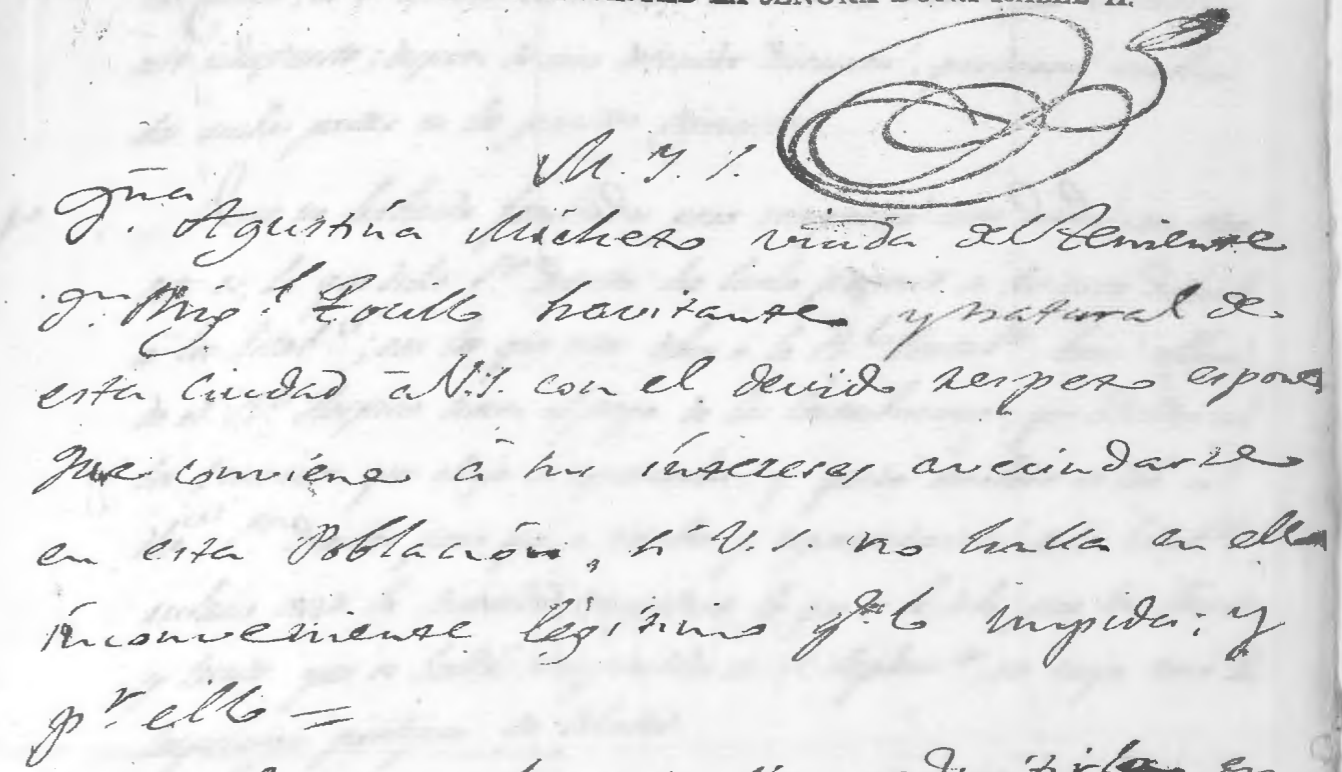 LA SEÑORA DOÑA ISABEL II.
M. Y. S.
Agustina Michero viuda del Teniente
Mig.l havitante y natural de
esta Ciudad á V.S. con el devido respeto espone
que conviene á sus intereses avecindarse
en esta Población, si V.S. no halla en ello
inconveniente legitimo q.e lo impida; y
p.r ello =